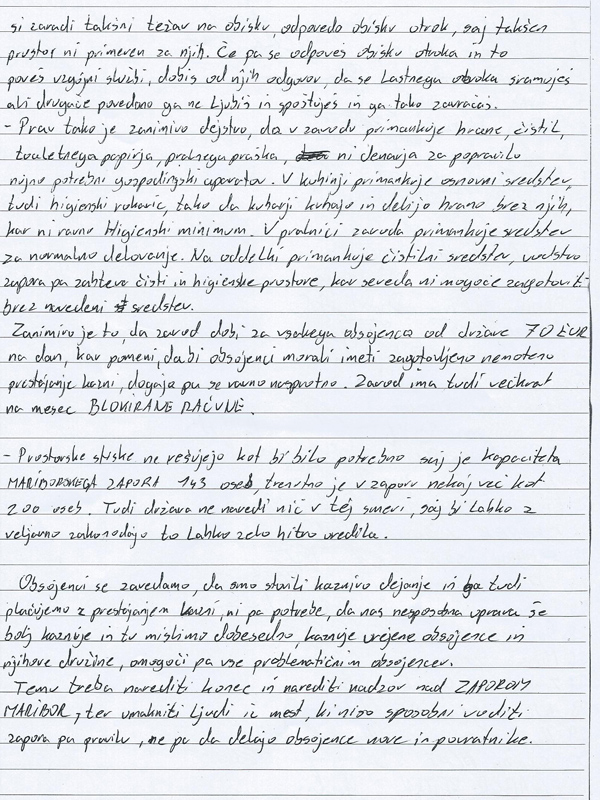 si zaradi takšni težav na obisku, odpovedo obisku otrok, saj takšen
prostor ni primeren za njih. Če pa se odpoveš obisku otroka in to
poveš vzgojni službi, dobiš od njih odgovor, da se Lastnega otroka sramuješ
ali drugače povedano ga ne Ljubiš in spoštuješ in ga tako zavračaš.
- Prav tako je zanimivo dejstvo, da v zavodu primankuje hrane, čistil,
toaletnega papirja, pralnega praška, ni denarja za popravilo
nujno potrebni gospodinjski aparatov. V kuhinji primankuje osnovni sredstev,
tudi higienski rokavic, tako da kuharji kuhajo in delijo hrano brez njih,
kar ni ravno Higienski minimum. V pralnici zavoda primankuje sredstev
za normalno delovanje. Na oddelki primankuje čistilni sredstev, vodstvo
zapora pa zahteva čisti in higienske prostore, kar seveda ni mogoče zagotoviti
brez navedeni sredstev.
Zanimivo je to, da zavod dobi za vsakega obsojenca od države 70 EUR
na dan, kar pomeni, da bi obsojenci morali imeti zagotovljeno nemoteno
prestajanje kazni, dogaja pa se ravno nasprotno. Zavod ima tudi večkrat
na mesec BLOKIRANE RAČUNE.
- Prostorske stiske ne rešujejo kot bi bilo potrebno saj je kapaciteta
MARIBORSKEGA ZAPORA 143 oseb, trenutno je v zaporu nekaj več kot
200 oseb. Tudi država ne naredi nič v tej smeri, saj bi Lahko z
veljavno zakonodajo to Lahko zelo hitro uredila.
Obsojenci se zavedamo, da smo storili kaznivo dejanje in ga tudi
plačujemo z prestajanjem kazni, ni pa potrebe, da nas nesposobna uprava še
bolj kaznuje in tu mislimo dobesedno, kaznuje urejene obsojence in
njihove družine, omogoči pa vse problematičnim obsojencem.
Temu treba narediti konec in narediti nadzor nad ZAPOROM
MARIBOR, ter umakniti Ljudi iz mest, ki niso sposobni voditi
zapora po pravilu, ne pa da delajo obsojence nove in povratnike.